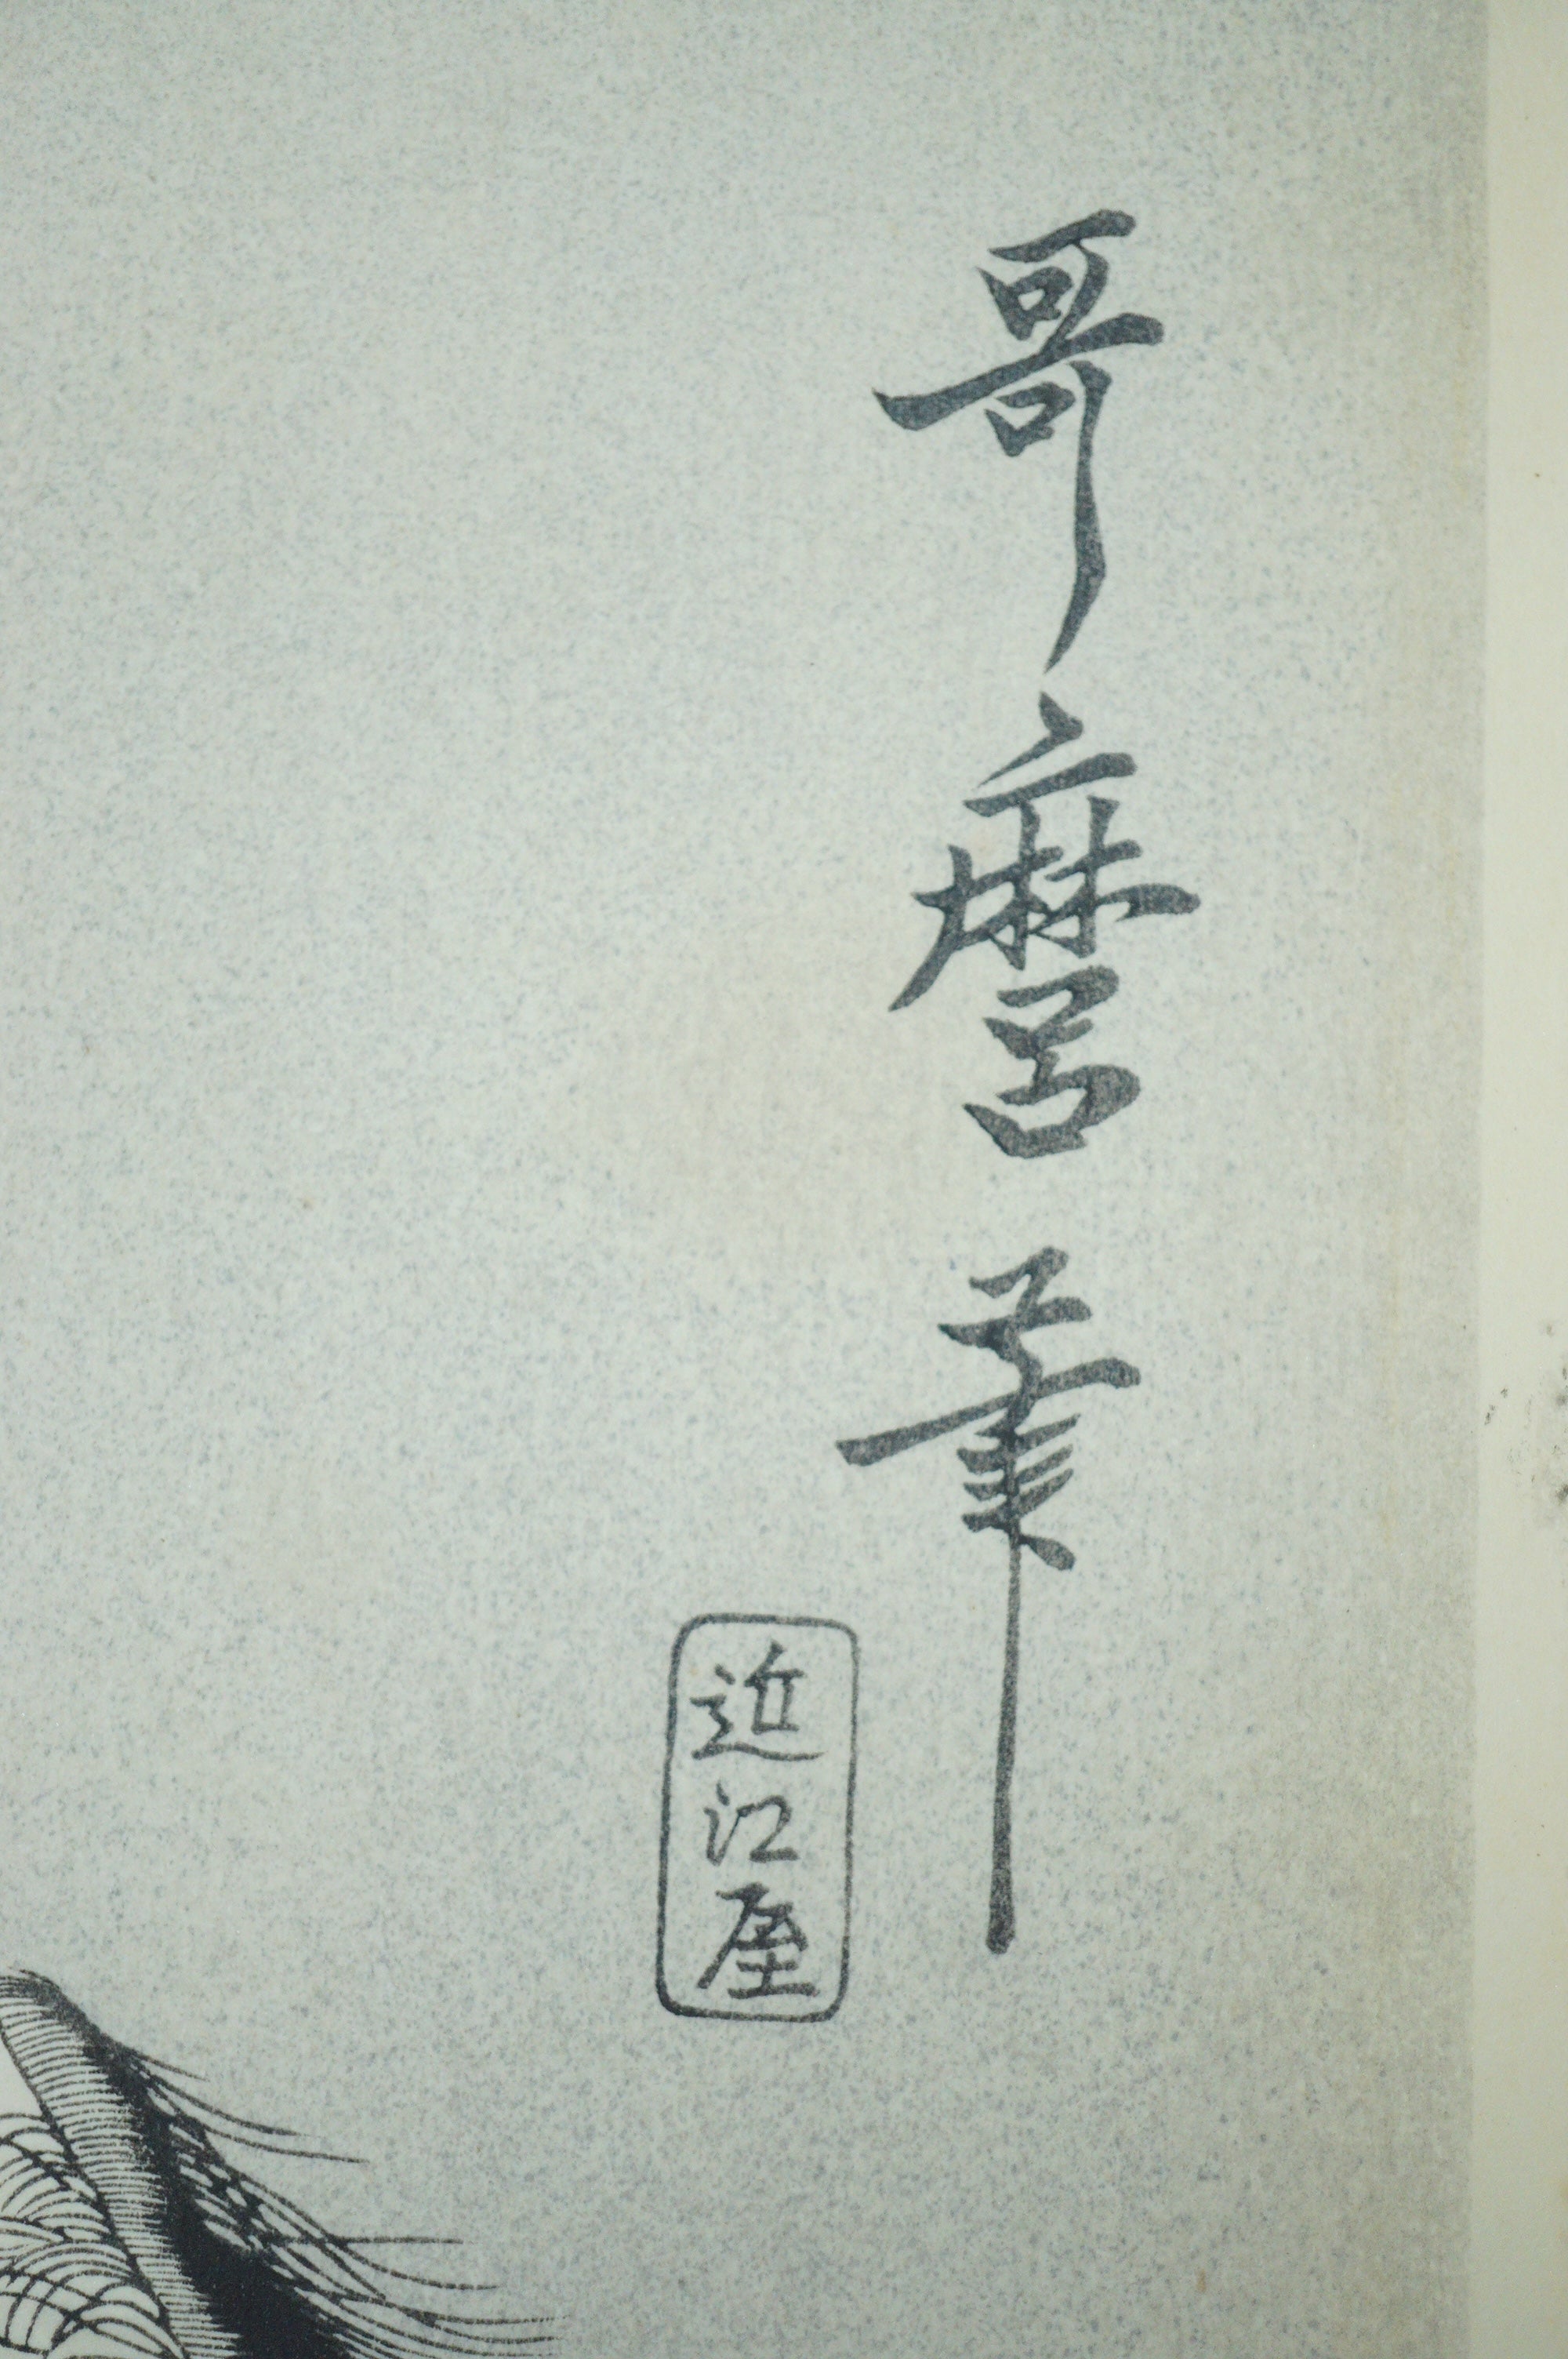 哥麿筆
近江屋